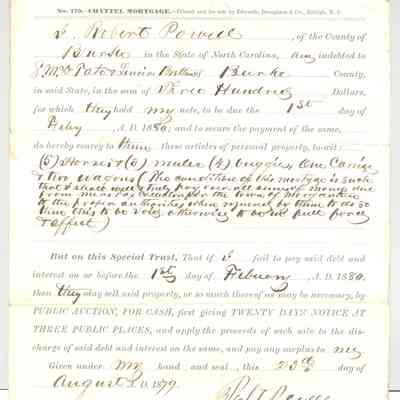 No. 179.—CHATTEL MORTGAGE.—Printed and for sale by Edwards, Broughton & Co., Raleigh, N. C.
I, Robert Powell, of the County of
Burke in the State of North Carolina, am indebted to
of Burke County,
in said State, in the sum of Three Hundred Dollars,
for which they hold my note, to be due the 1st day of
Feby, A. D. 1880; and to secure the payment of the same,
do hereby convey to them these articles of personal property, to-wit:
(5) Horses & (6) mules (4) buggies, One Carriage
& two wagons (The condition of this mortgage is such
that I shall well & truly pay over all sums of money due
from me as tax collector for the town of Morganton
to the proper authorities when required by them to do so
then this to be void, otherwise to be in full force
& effect)
But on this Special Trust, That if I fail to pay said debt and
interest on or before the 1st day of Februay, A. D. 1880.
then they may sell said property, or so much thereof as may be necessary, by
PUBLIC AUCTION, FOR CASH, first giving TWENTY DAYS NOTICE AT
THREE PUBLIC PLACES, and apply the proceeds of such sale to the dis-
charge of said debt and interest on the same, and pay any surplus to me
Given under my hand and seal, this 23rd day of
August A. D. 1879
Robt Powell